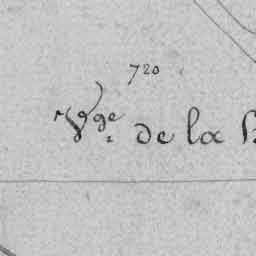 720
Vge. de la